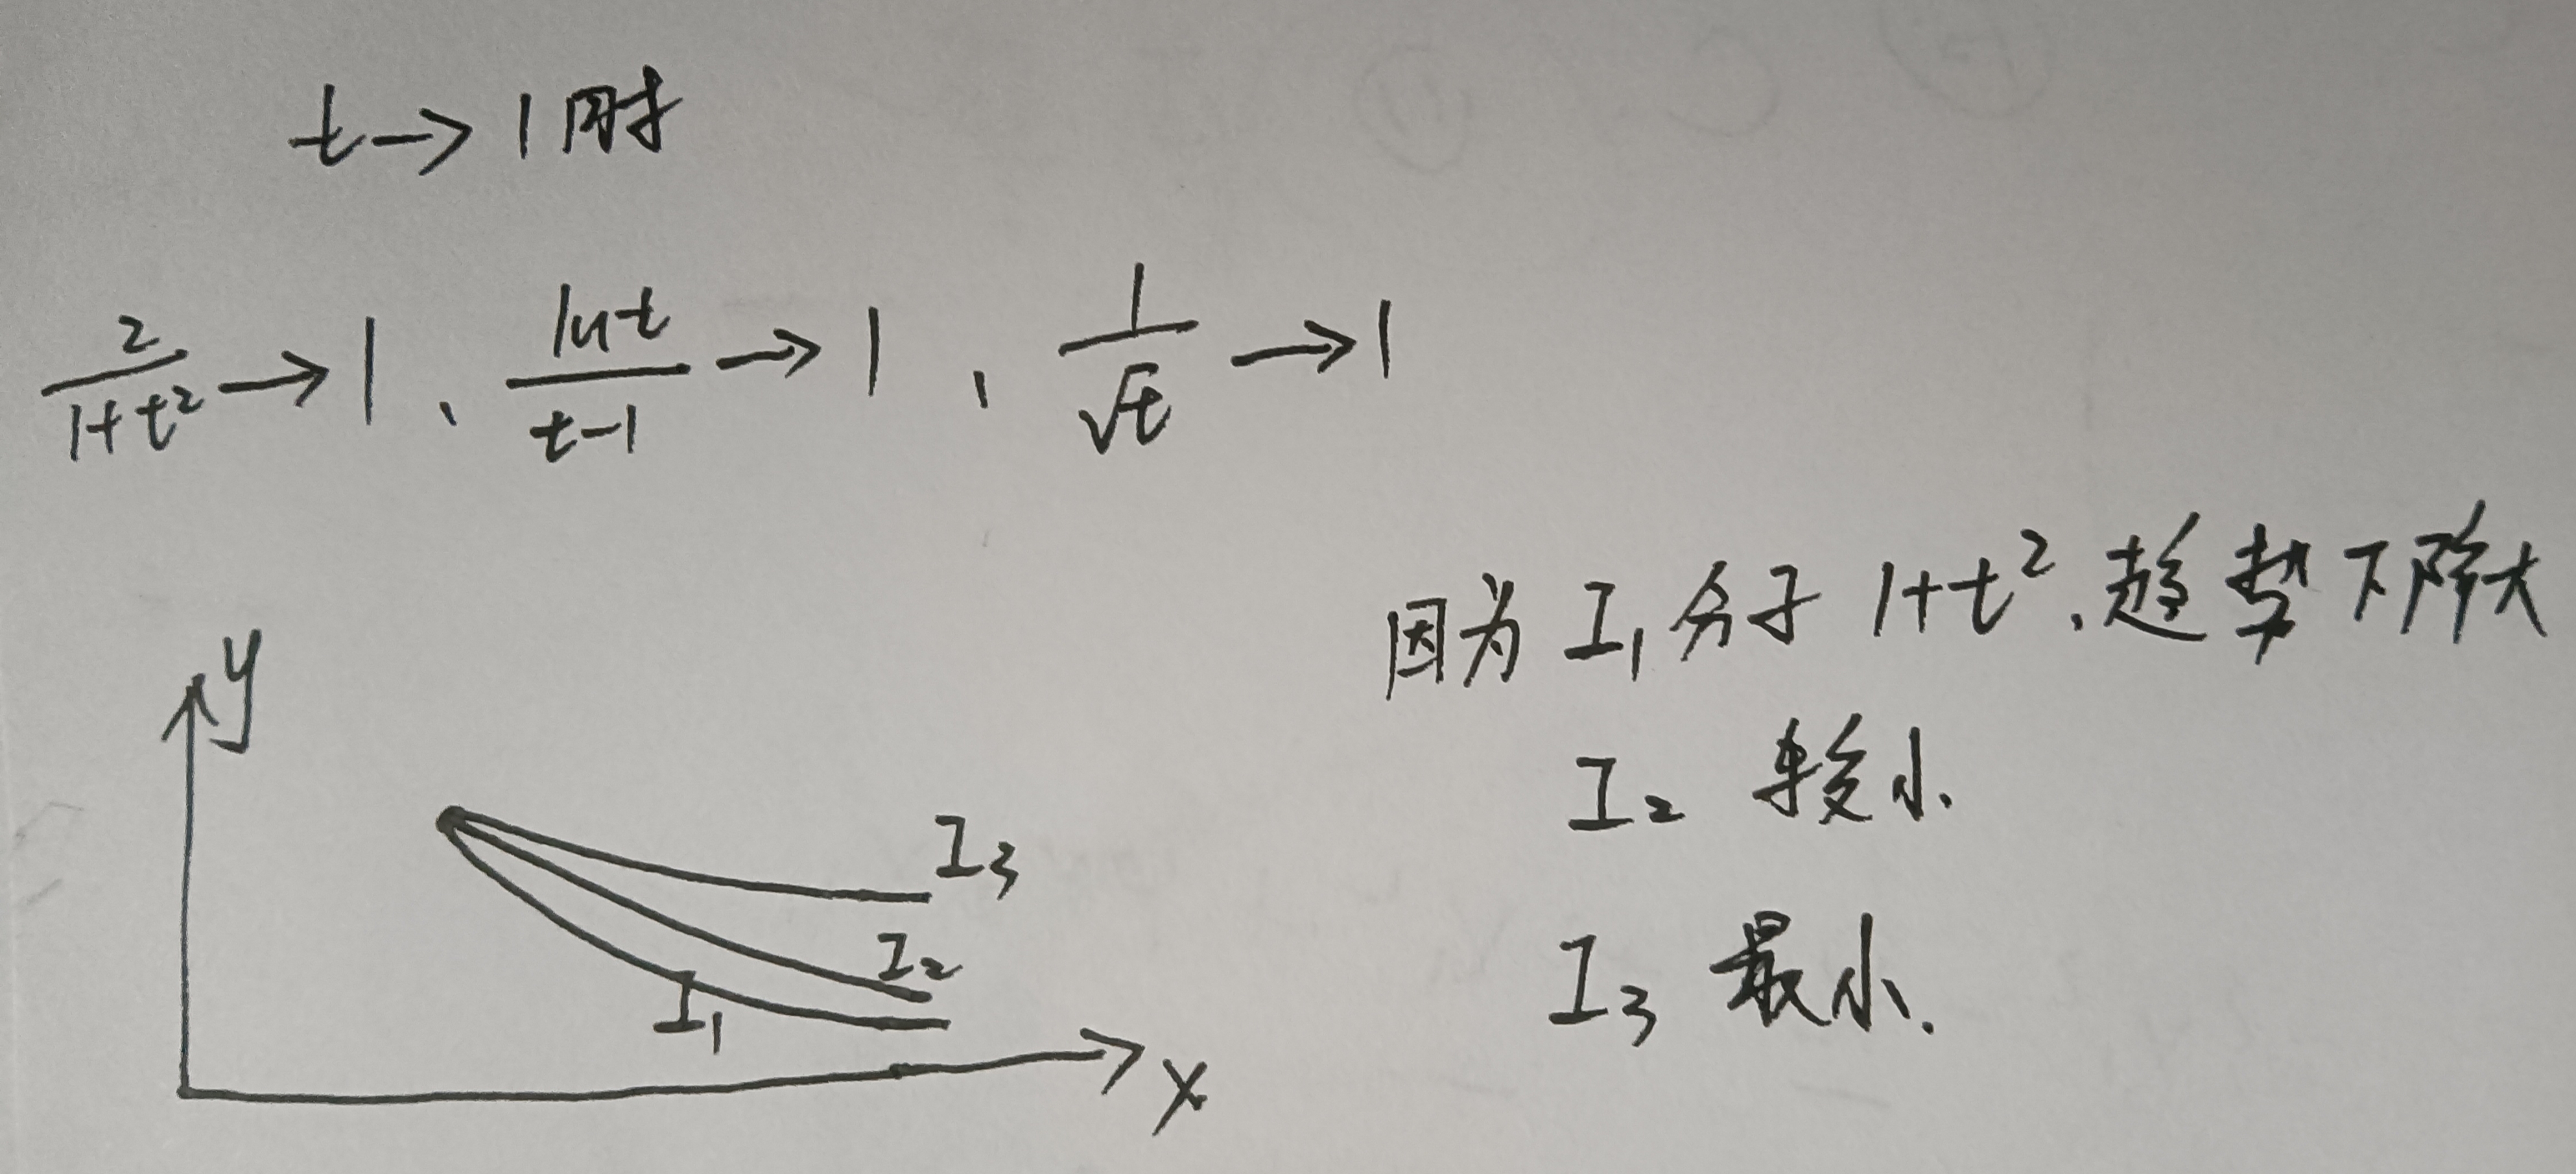 t→1时
2/(1+t²)→1、lnt/(t-1)→1、1/√t→1
因为I₁分子1+t².趋势下降大
I₂较小.
I₃最小.
y
I₃
I₂
I₁
x